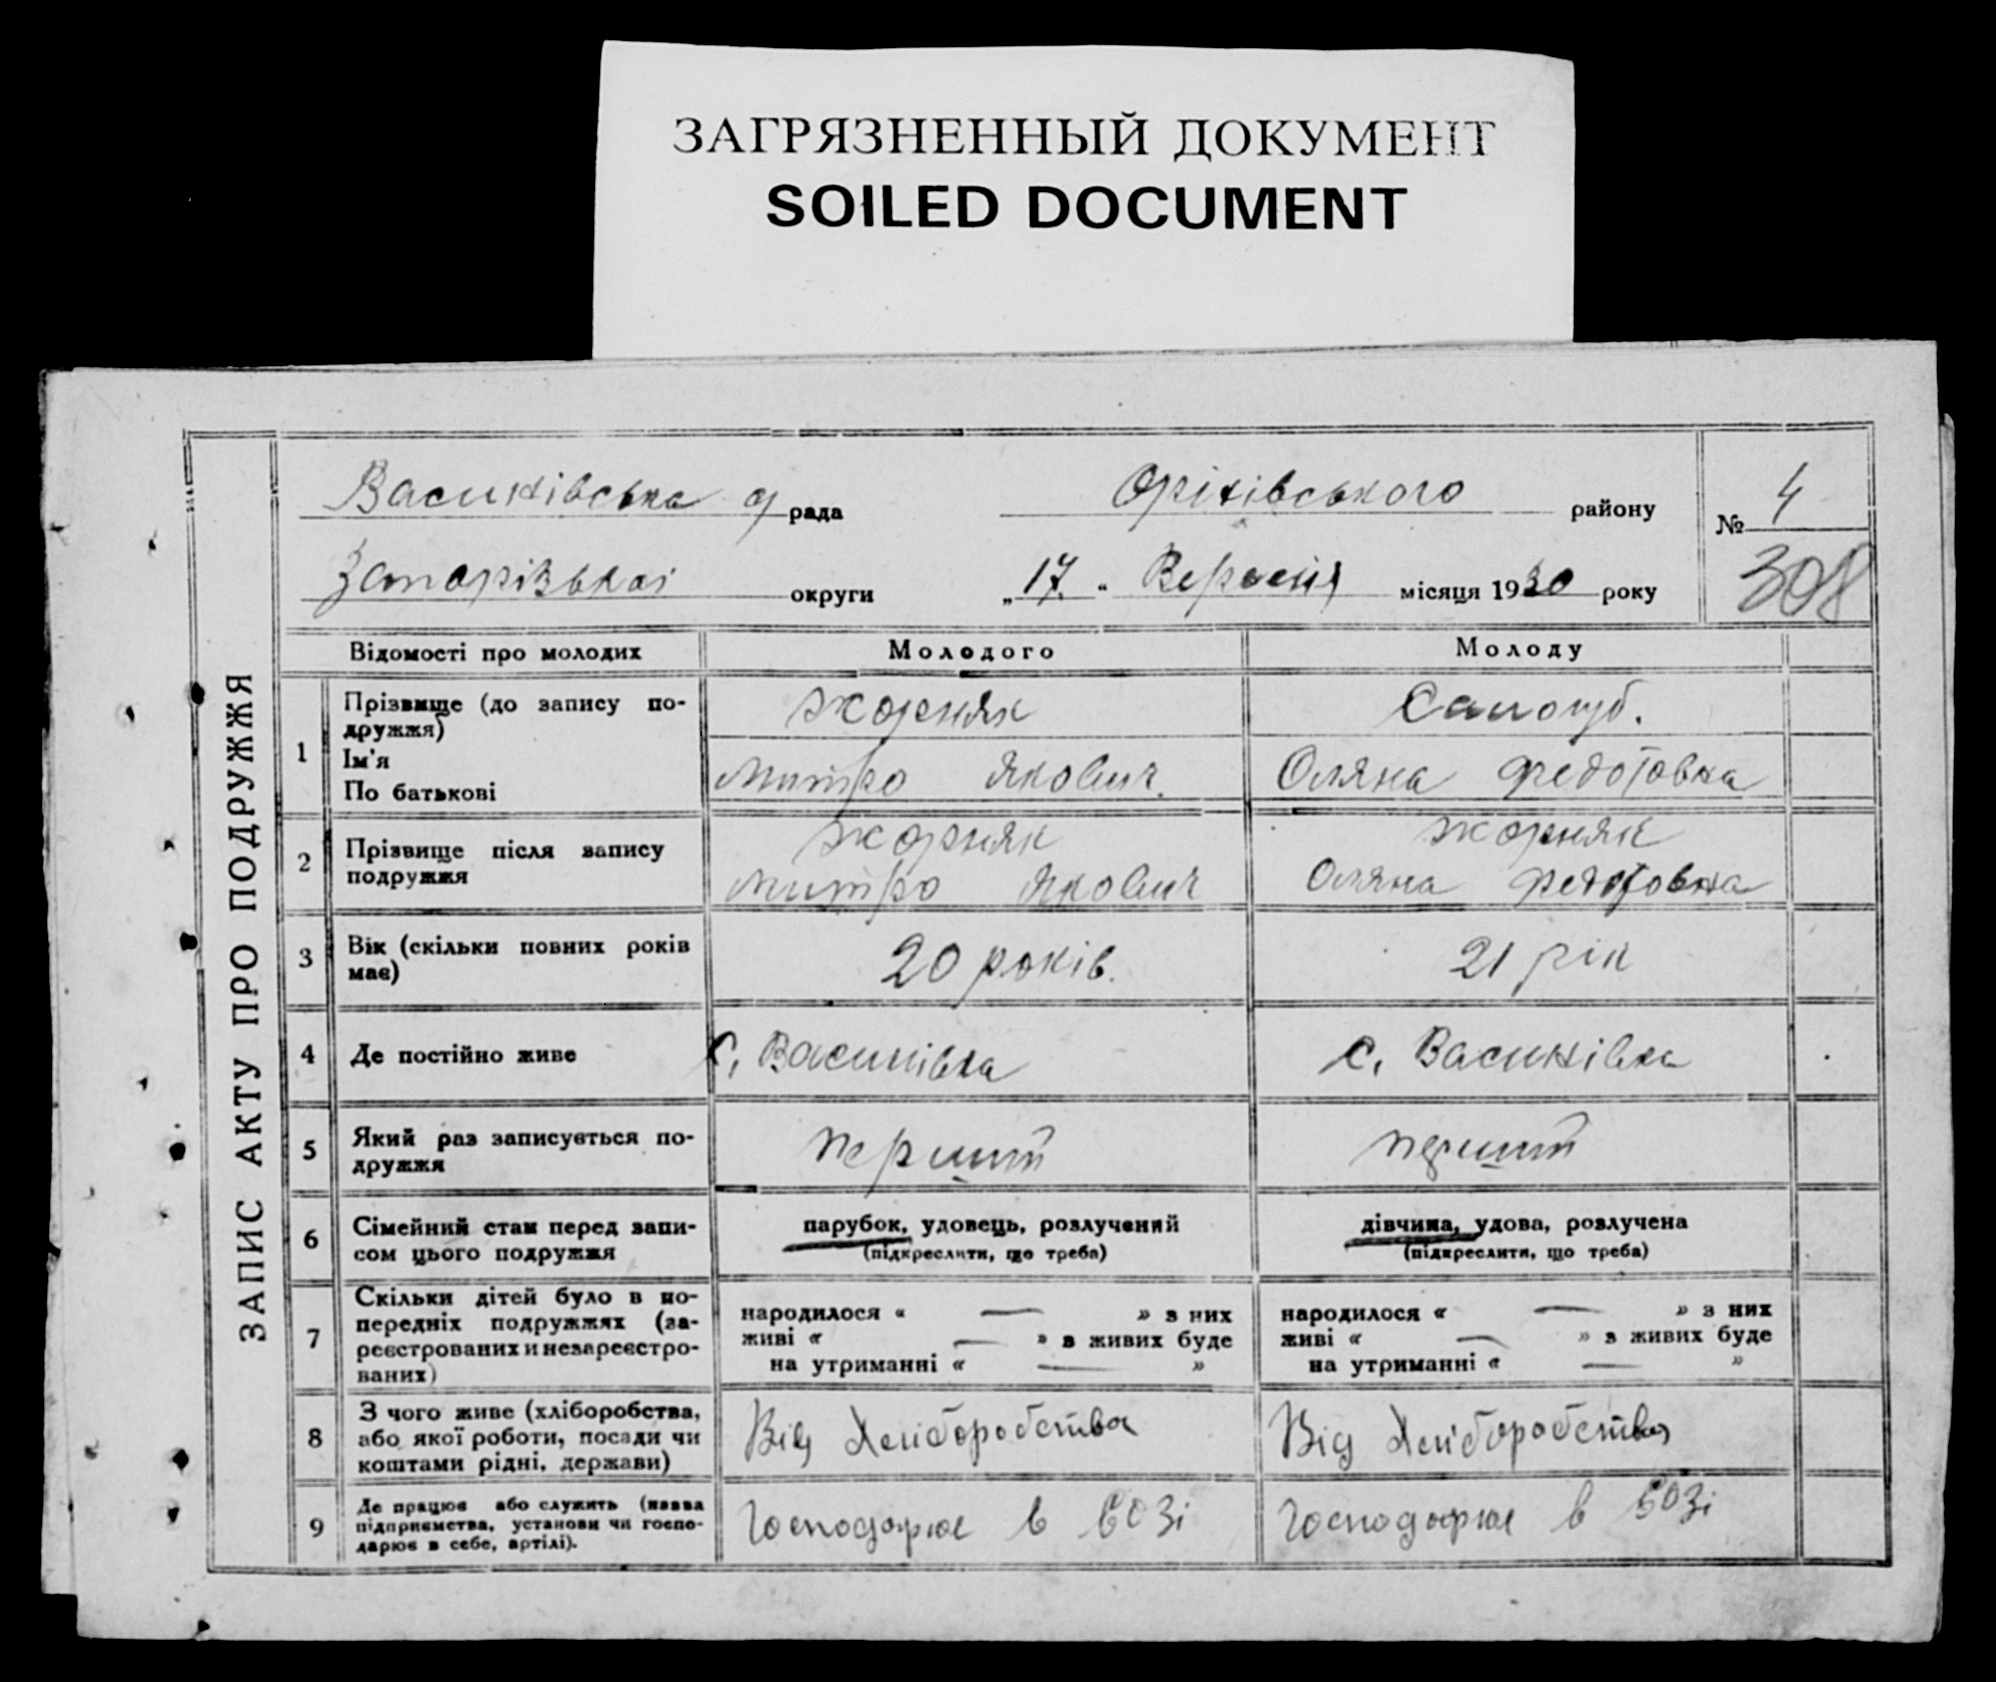 ЗАГРЯЗНЕННЫЙ ДОКУМЕНТ
SOILED DOCUMENT
ЗАПИС АКТУ ПРО ПОДРУЖЖЯ
Васинівська рада Оріхівського району № 4
Запорізької округи „17.“ Вересня місяця 1930 року 308
Відомості про молодих Молодого Молоду
1 Прізвище (до запису по-
дружжя)
Ім'я
По батькові
Жорняк
Митро Якович.
Сапогуб.
Оляна Федотовна
2 Прізвище після запису
подружжя
Жорняк
Митро Якович
Жорняк
Оляна Федотовна
3 Вік (скільки повних років
має)
20 років.
21 рік
4 Де постійно живе
с. Васинівка
с. Васинівка
5 Який раз записується по-
дружжя
перший
перший
6 Сімейний стан перед запи-
сом цього подружжя
парубок, удовець, розлучений
(підкреслити, що треба)
дівчина, удова, розлучена
(підкреслити, що треба)
7 Скільки дітей було в по-
передніх подружжях (за-
реєстрованих и незареєстро-
ваних)
народилося « — » з них
живі « — » з живих буде
на утриманні « — »
народилося « — » з них
живі « — » з живих буде
на утриманні « — »
8 З чого живе (хліборобства,
або якої роботи, посади чи
коштами рідні, держави)
Від Хліборобства
Від Хліборобства
9 Де працює або служить (назва
підприємства, установи чи госпо-
дарює в себе, артілі).
Господарює в СОЗі
Господарює в СОЗі